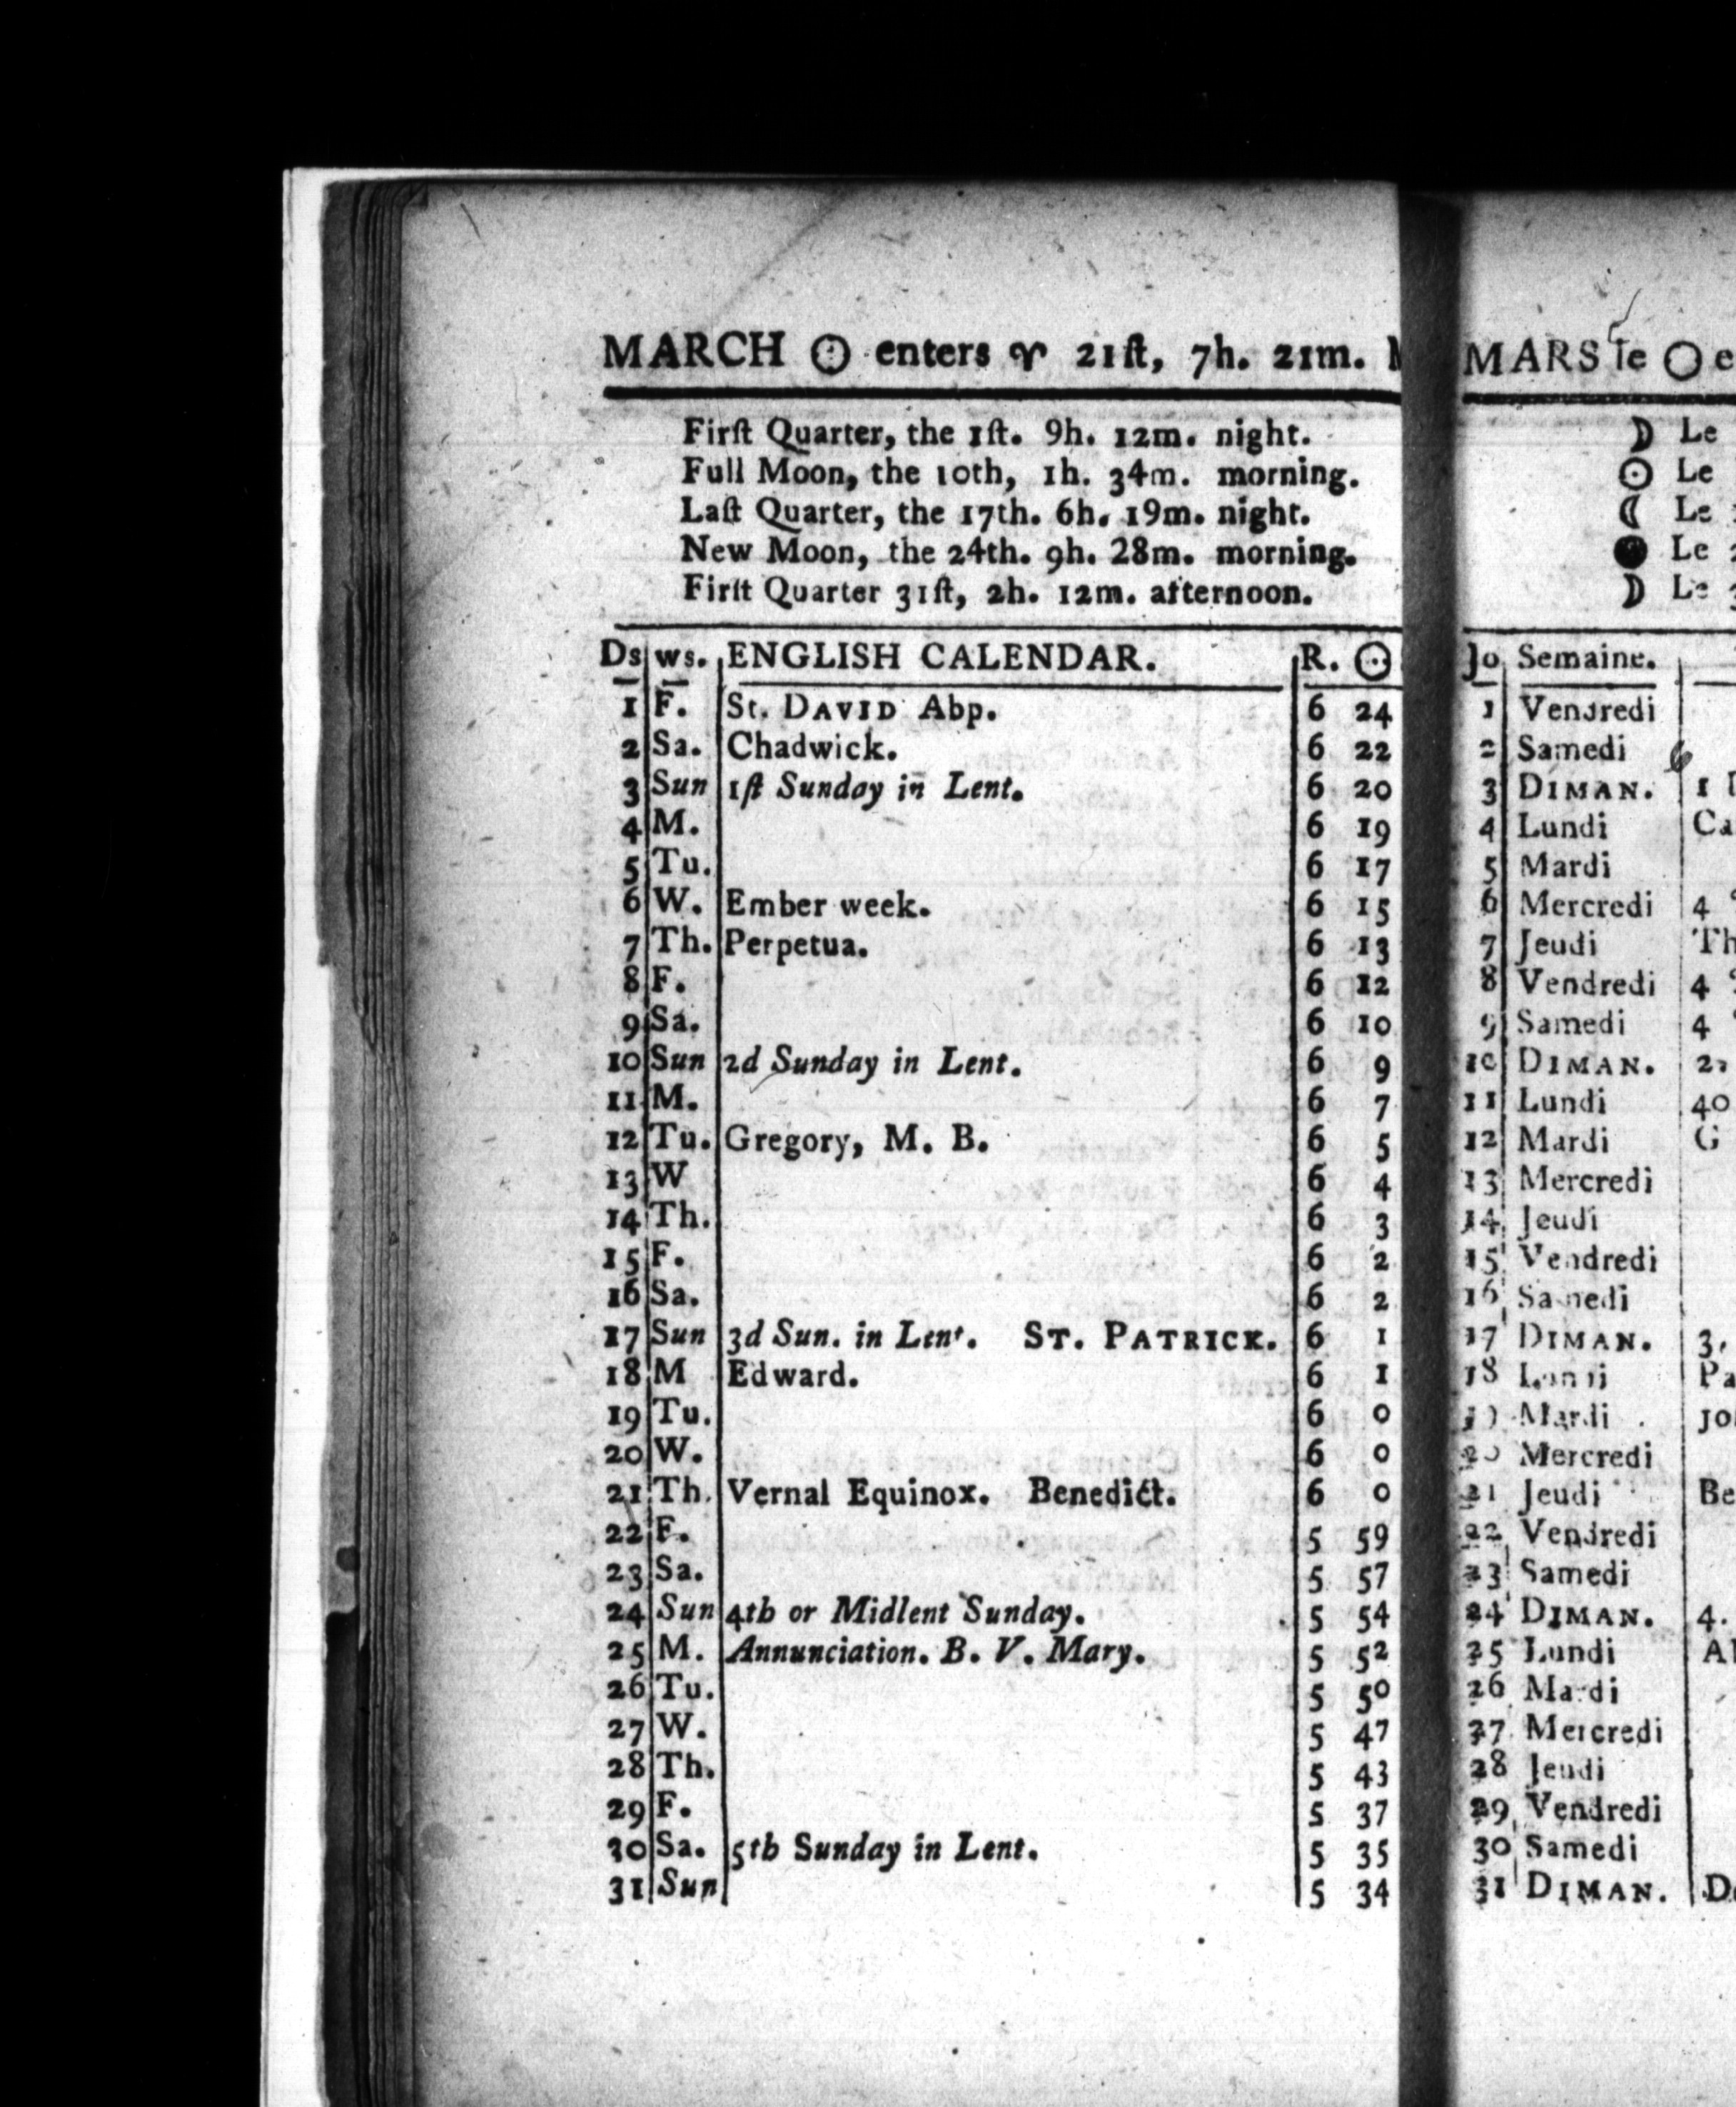 MARCH ☉ enters ♈ 21ſt, 7h. 21m.
Firſt Quarter, the 1ſt. 9h. 12m. night.
Full Moon, the 10th, 1h. 34m. morning.
Laſt Quarter, the 17th. 6h. 19m. night.
New Moon, the 24th. 9h. 28m. morning.
Firſt Quarter 31ſt, 2h. 12m. afternoon.
Ds ws. ENGLISH CALENDAR. R. ☉
1 F. St. DAVID Abp. 6 24
2 Sa. Chadwick. 6 22
3 Sun 1ſt Sunday in Lent. 6 20
4 M. 6 19
5 Tu. 6 17
6 W. Ember week. 6 15
7 Th. Perpetua. 6 13
8 F. 6 12
9 Sa. 6 10
10 Sun 2d Sunday in Lent. 6 9
11 M. 6 7
12 Tu. Gregory, M. B. 6 5
13 W 6 4
14 Th. 6 3
15 F. 6 2
16 Sa. 6 2
17 Sun 3d Sun. in Lent. ST. PATRICK. 6 1
18 M Edward. 6 1
19 Tu. 6 0
20 W. 6 0
21 Th. Vernal Equinox. Benedict. 6 0
22 F. 5 59
23 Sa. 5 57
24 Sun 4th or Midlent Sunday. 5 54
25 M. Annunciation. B. V. Mary. 5 52
26 Tu. 5 50
27 W. 5 47
28 Th. 5 43
29 F. 5 37
30 Sa. 5th Sunday in Lent. 5 35
31 Sun 5 34
MARS le ☉ e
☽ Le
☉ Le
☾ Le
● Le
☽ Le
Jo Semaine.
1 Vendredi
2 Samedi 6
3 DIMAN. 1
4 Lundi Ca
5 Mardi
6 Mercredi 4
7 Jeudi Th
8 Vendredi 4
9 Samedi 4
10 DIMAN. 2,
11 Lundi 40
12 Mardi G
13 Mercredi
14 Jeudi
15 Vendredi
16 Samedi
17 DIMAN. 3,
18 Lundi Pa
19 Mardi Jo
20 Mercredi
21 Jeudi Be
22 Vendredi
23 Samedi
24 DIMAN. 4.
25 Lundi A
26 Mardi
27 Mercredi
28 Jeudi
29 Vendredi
30 Samedi
31 DIMAN. D